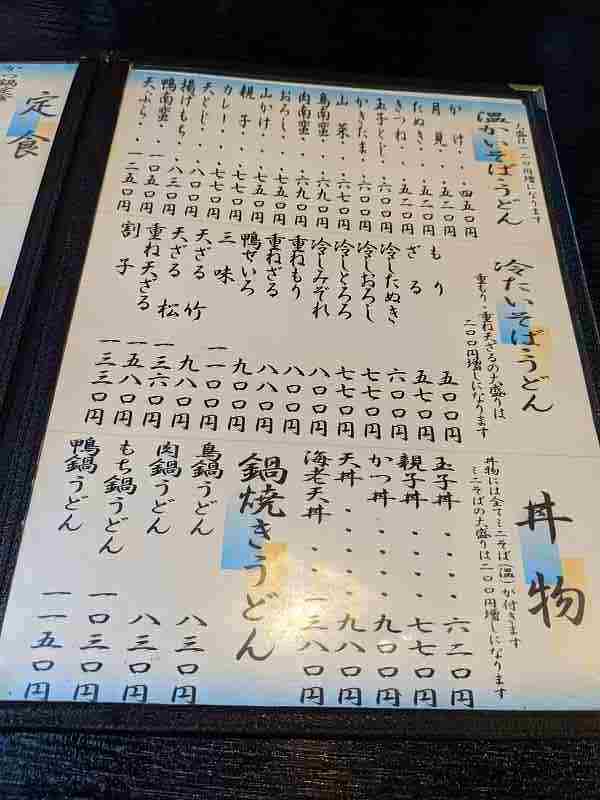 定食
温かいそば・うどん
大盛は一二〇円増になります
かけ・・四五〇円
月見・・五二〇円
たぬき・・五二〇円
きつね・・五二〇円
玉子とじ・・六〇〇円
かきたま・・六〇〇円
山菜・・六七〇円
鳥南蛮・・六九〇円
肉南蛮・・六九〇円
おろし・・六九〇円
山かけ・・七五〇円
親子・・七七〇円
カレー・・七七〇円
天とじ・・七七〇円
揚げもち・・八三〇円
鴨南蛮・・一〇五〇円
天ぷら・・一二五〇円
冷たいそば・うどん
重もり、重ね天ざるの大盛りは
二〇〇円増しになります
もり 五〇〇円
ざる 五七〇円
冷したぬき 六〇〇円
冷しおろし 七七〇円
冷しとろろ 七七〇円
冷しみぞれ 八〇〇円
重ねもり 八〇〇円
重ねざる 八八〇円
鴨せいろ 九〇〇円
三味 一一〇〇円
天ざる 竹 九八〇円
天ざる 松 一三六〇円
重ね天ざる 一五八〇円
割子 一三三〇円
丼物
丼物には全てミニそば(温)が付きます
ミニそばの大盛りは二〇〇円増しになります
玉子丼・・・・六二〇円
親子丼・・・・七七〇円
かつ丼・・・・九〇〇円
天丼・・・・九八〇円
海老天丼・・・一三八〇円
鍋焼きうどん
鳥鍋うどん 八三〇円
肉鍋うどん 八三〇円
もち鍋うどん 一〇三〇円
鴨鍋うどん 一一五〇円